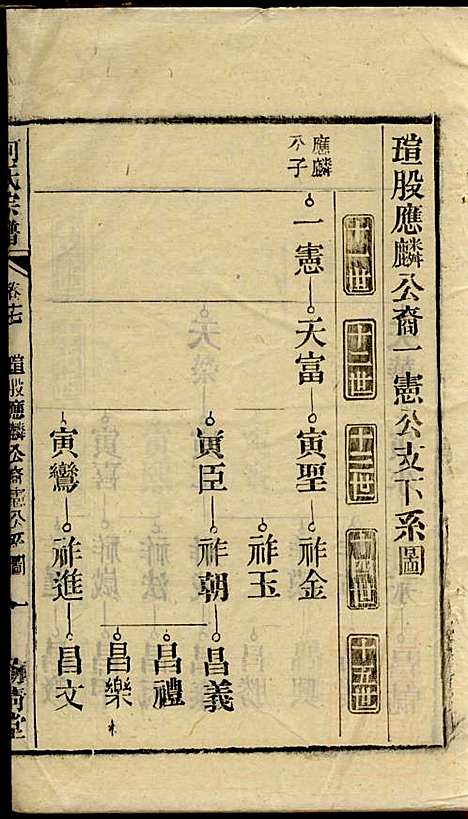 瑄股應麟公裔一憲公支下系圖
十一世
十二世
十三世
十四世
十五世
應麟
公子
一憲
天富
寅聖
祚金
祚玉
寅臣
祚朝
昌義
昌禮
昌樂
寅鸞
祚進
昌文
何氏宗譜
瑄股應麟公裔一憲公系圖